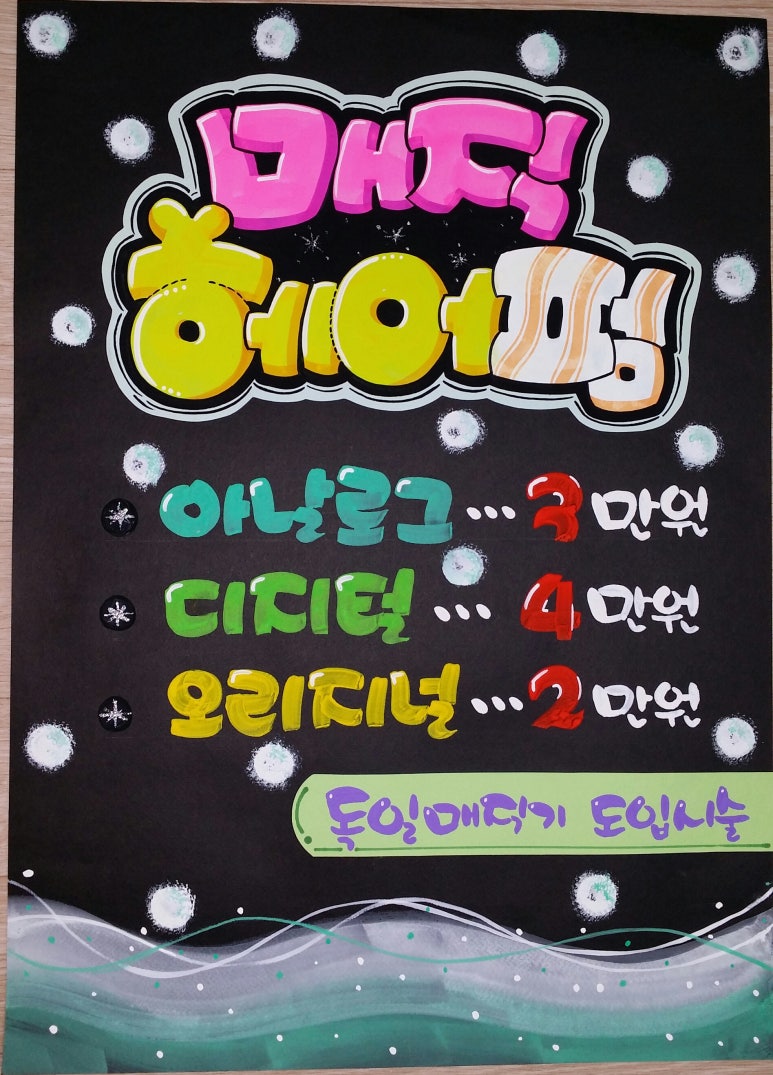 매직
헤어펌
아날로그 ... 3만원
디지털 ... 4만원
오리지널 ... 2만원
독일매직기 도입시술